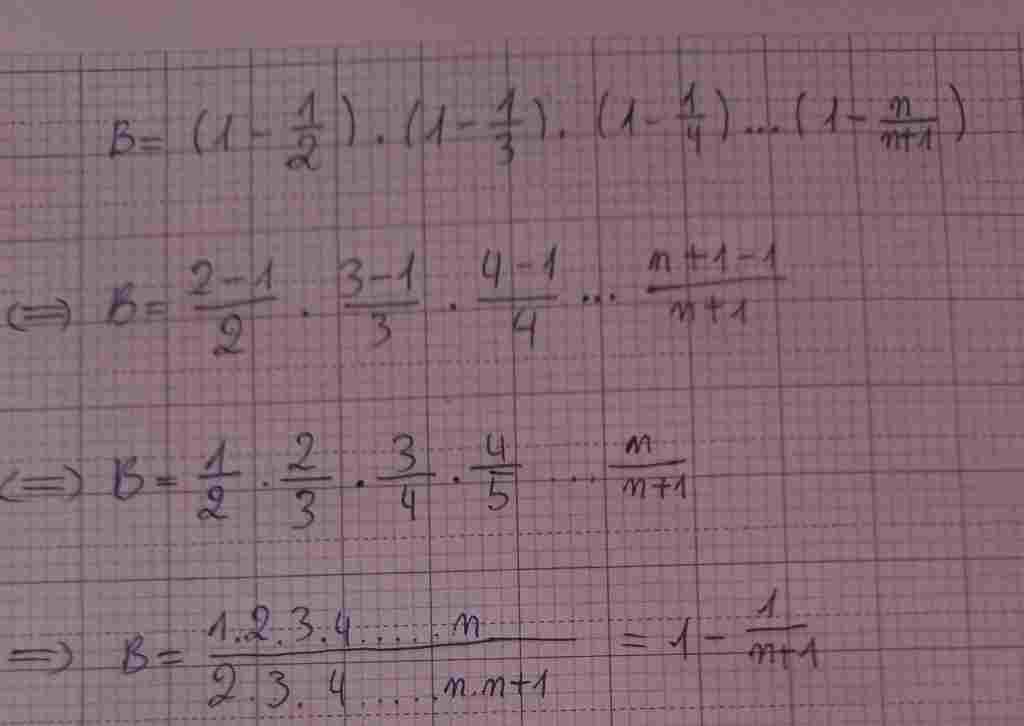 B = (1 - 1/2) . (1 - 1/3) . (1 - 1/4) ... (1 - n/n+1)
(=) B = 2-1/2 . 3-1/3 . 4-1/4 ... n+1-1/n+1
(=) B = 1/2 . 2/3 . 3/4 . 4/5 ... n/n+1
=) B = 1.2.3.4.....n/2.3.4.....n.n+1 = 1 - 1/n+1